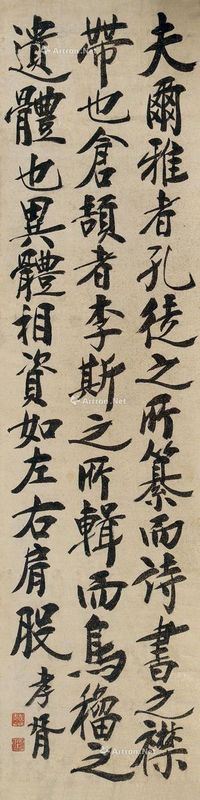 夫爾雅者孔徒之所纂而詩書之襟
帶也倉頡者李斯之所輯而鳥籀之
遺體也異體相資如左右肩股
孝胥
Artron.Net
Artron.Net
Artron.Net
Artron.Net